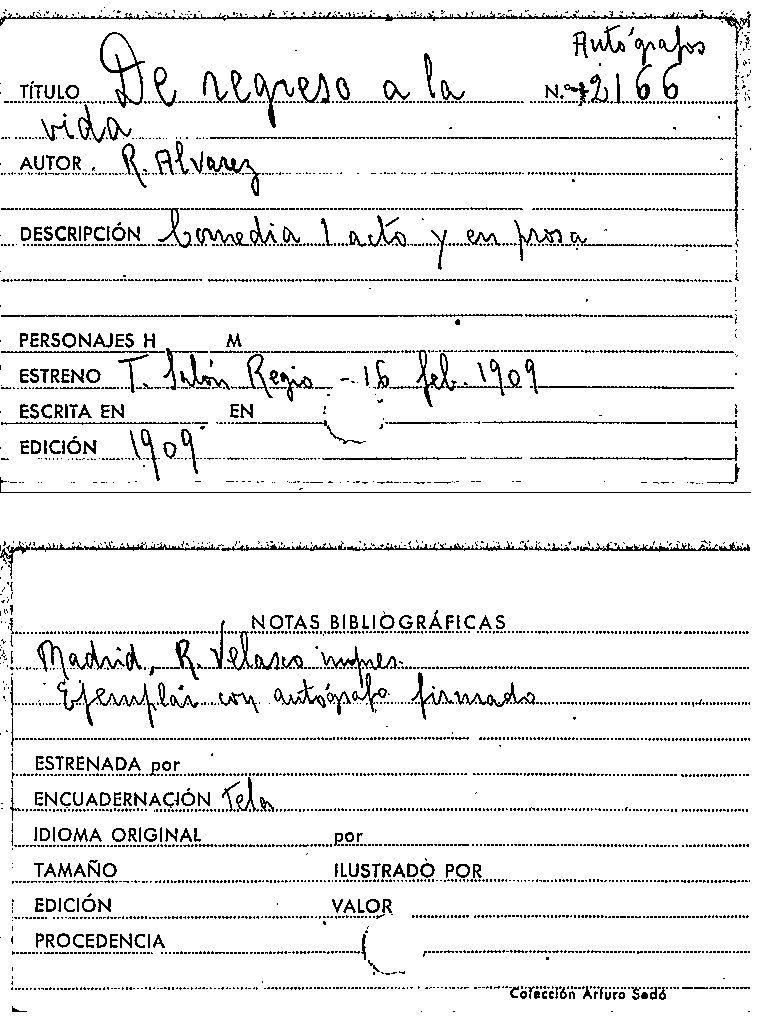 Autógrafos
TÍTULO De regreso a la N.º 2166
vida
AUTOR. R. Alvarez
DESCRIPCIÓN Comedia 1 acto y en prosa
PERSONAJES H M
ESTRENO T. Salón Regio - 16 feb. 1909
ESCRITA EN EN
EDICIÓN 1909
NOTAS BIBLIOGRÁFICAS
Madrid, R. Velasco impres.
Ejemplar con autógrafo firmado
ESTRENADA por
ENCUADERNACIÓN Tela
IDIOMA ORIGINAL por
TAMAÑO ILUSTRADO POR
EDICIÓN VALOR
PROCEDENCIA
Colección Arturo Sedó